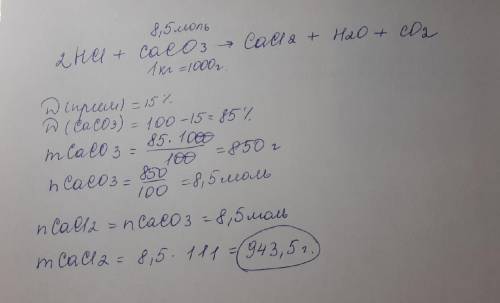 8,5 моль
2HCl + CaCO3 → CaCl2 + H2O + CO2
1 кг = 1000г.
W(прим) = 15%
W(CaCO3) = 100 - 15 = 85%
mCaCO3 = 85 · 1000 / 100 = 850 г
nCaCO3 = 850 / 100 = 8,5 моль
nCaCl2 = nCaCO3 = 8,5 моль
mCaCl2 = 8,5 · 111 = 943,5 г.